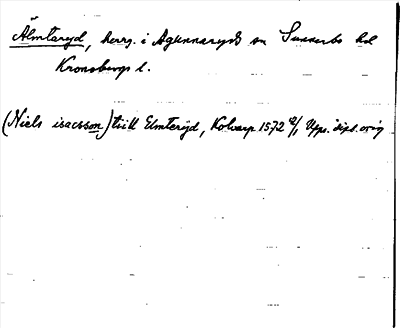 Älmtaryd, herrg. i Agunnaryds sn Sunnerbo hd
Kronobergs l.
(Niels isacsson) tiill Elmteryd, Kolvarp 1572 12/1 Upps. dipl. orig